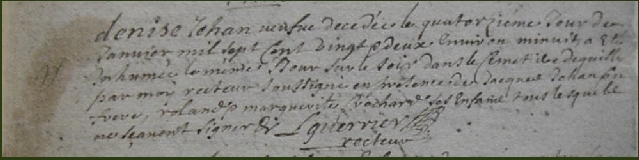 denise Johan veufve decedée le quatorzième Jour de
Janvier mil sept cent vingt deux environ minuit a Eté
Inhumée le mesme Jour sur le soir dans le cimetiere de
par moy recteur soussigné en presence de Jacques Johan son
frere, rolland marguerite ses Enfans tous lesquels
ne sçavent signer L guerrier
recteur